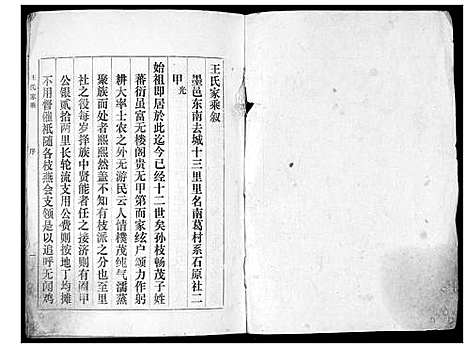 王氏家乘叙
墨邑东南去城十三里里名南葛村系石原社二
甲光
始祖即居於此迄今已经十二世矣孙枝畅茂子姓
蕃衍虽富无楼阁贵无甲第而家纮户颂力作躬
耕大率士农之外无游民云人情朴茂纯气濡蒸
聚族而处者熙熙然盖不知有枝派之分也至里
社之役每岁择族中贤能者任之接济则有阖甲
公银贰拾两里长轮流支用公费则按地丁均摊
不用督催祗随各枝燕会支领是以追呼无闻鸡
王氏家乘
序
一